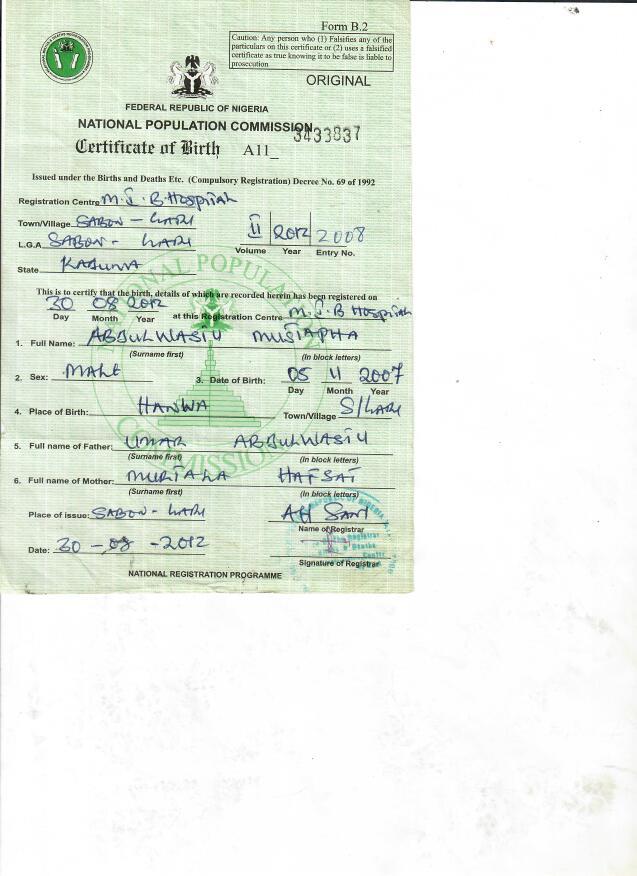 Form B.2
Caution: Any person who (1) Falsifies any of the
particulars on this certificate or (2) uses a falsified
certificate as true knowing it to be false is liable to
prosecution
ORIGINAL
FEDERAL REPUBLIC OF NIGERIA
NATIONAL POPULATION COMMISSION
3433837
Certificate of Birth A11_
Issued under the Births and Deaths Etc. (Compulsory Registration) Decree No. 69 of 1992
Registration Centre M.I.B Hospital
Town/Village SABON - GARI
II 2012 2008
L.G.A SABON - GARI
Volume Year Entry No.
State KADUNA
This is to certify that the birth, details of which are recorded herein has been registered on
30 08 2012 at this Registration Centre M.I.B Hospital
Day Month Year
1. Full Name: ABDULWASIU MUSTAPHA
(Surname first) (In block letters)
2. Sex: MALE 3. Date of Birth: 05 11 2007
Day Month Year
4. Place of Birth: HANWA Town/Village S/GARI
5. Full name of Father: UMAR ABDULWASIU
(Surname first) (In block letters)
6. Full name of Mother: MURTALA HAFSAT
(Surname first) (In block letters)
Place of issue: SABON - GARI AH SANI
Name of Registrar
Date: 30 - 08 - 2012
Signature of Registrar
NATIONAL REGISTRATION PROGRAMME